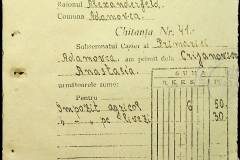 Raionul Alexanderfeld.
Comuna Adamovca.
Chitanța Nr. 41.
Subsemnatul Casier al Primăriei
Adamovca am primit dela Crijanovscai
Anastasia
următoarele sume:
SUMA
Pentru
Impozit agricol 6 50.
" " pe elevezi 30.